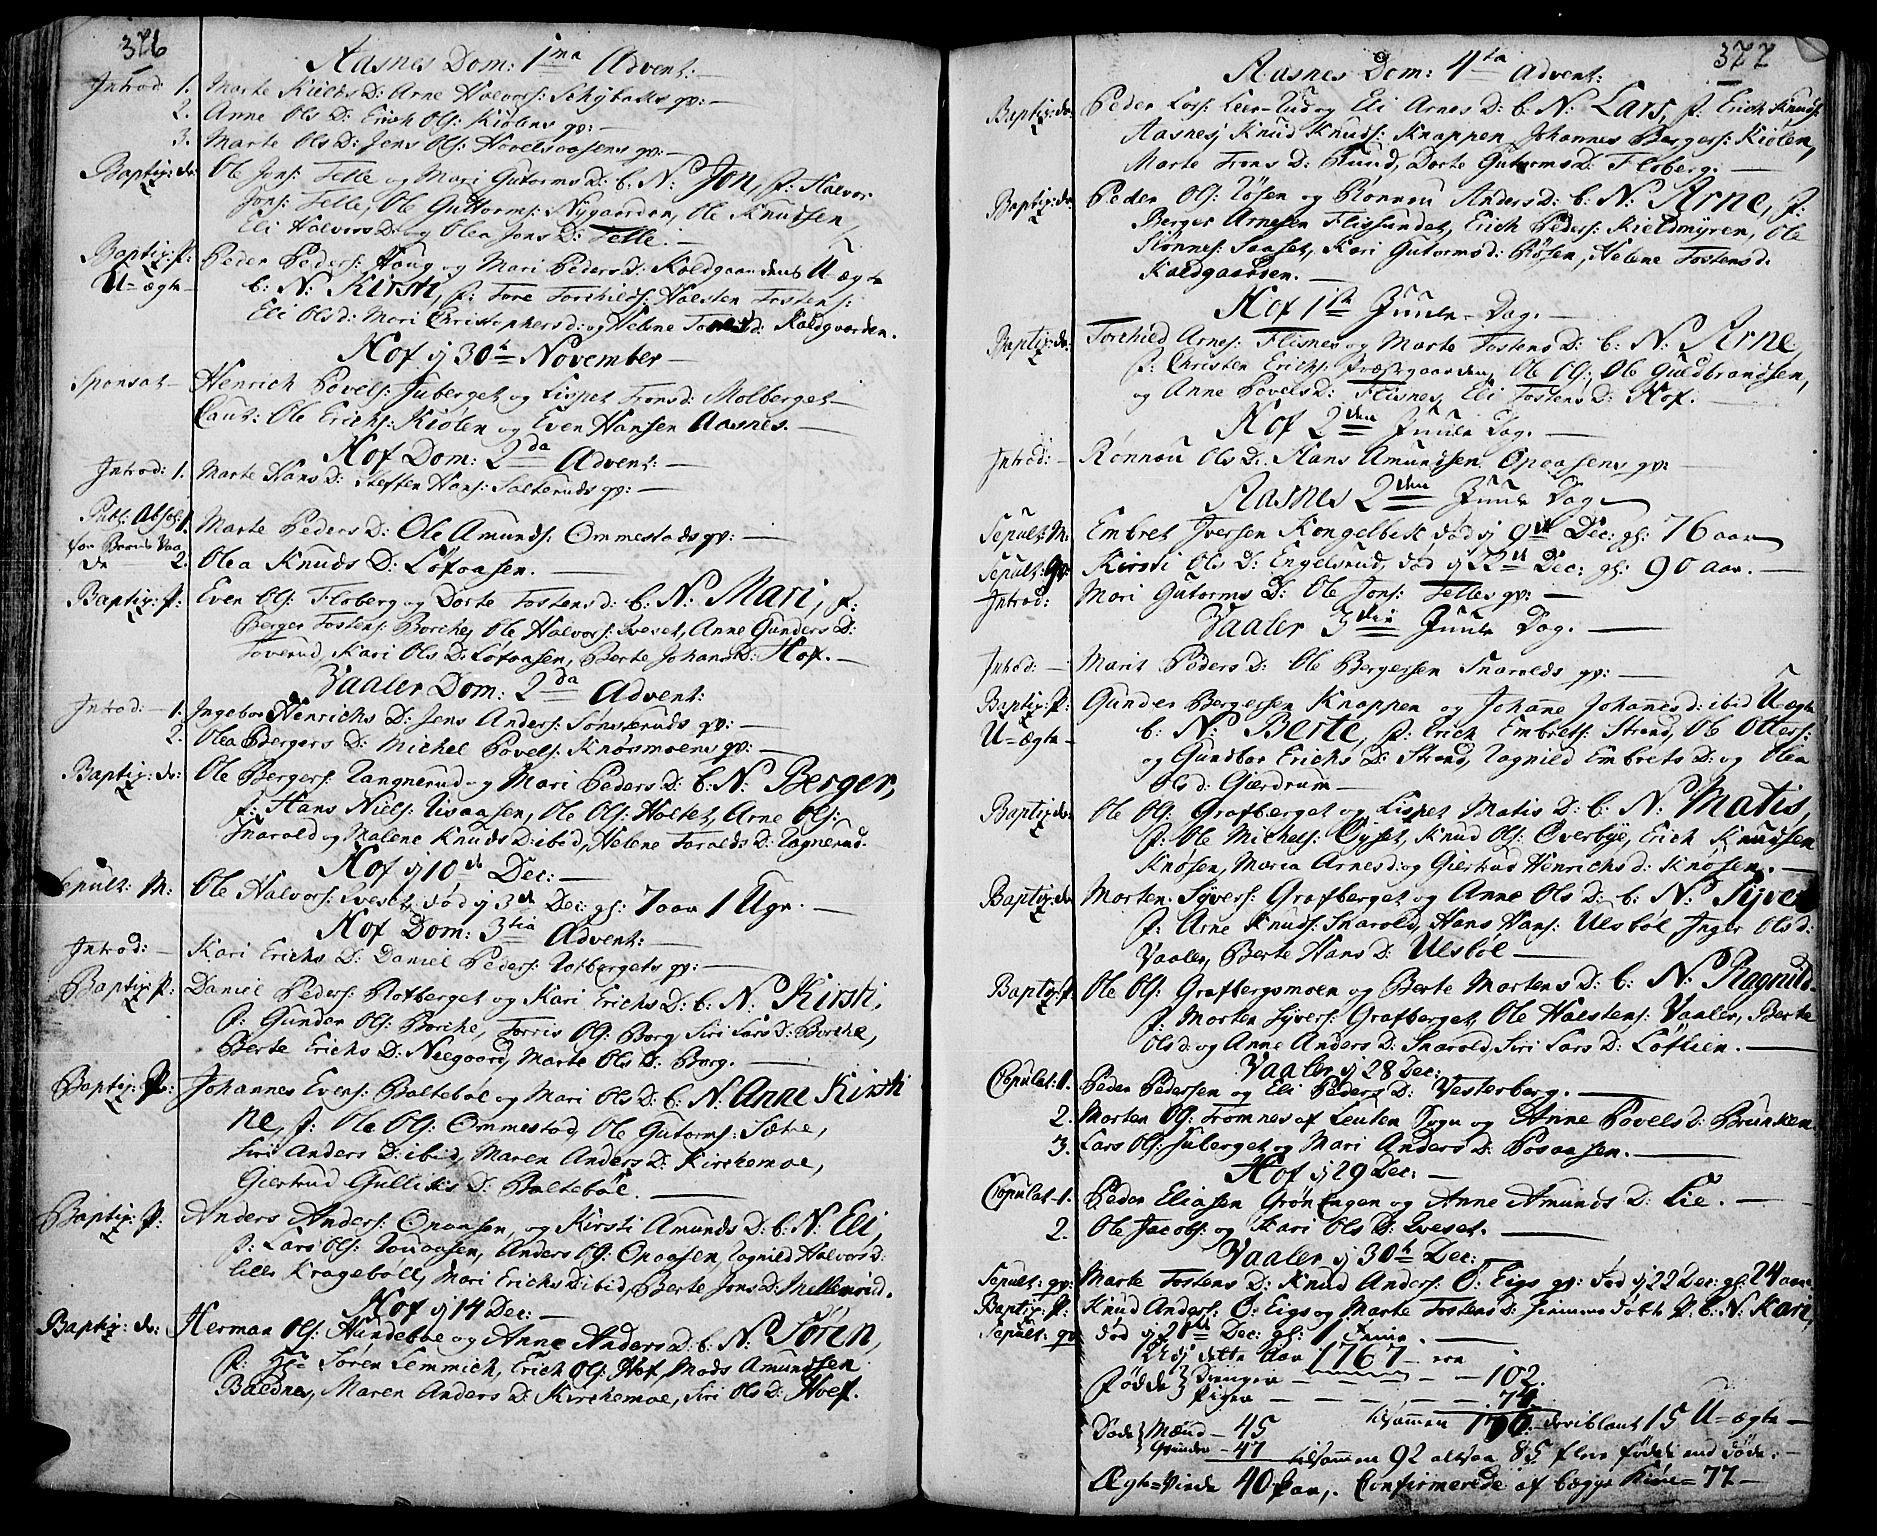 376
Aasnes Dom: 1ma Advent:
Introd 1. Marte Kields D: Arne Halvors: Schybaks qv:
2. Anne Ols D: Erich Ols: Kiølens qv:
3. Marte Ols D: Jens Ols: Hovelsaasens qv:
Baptiz: dr: Ole Jons: Telle og Mari Gutorms D: b: N: Jon, f: Halvor
Jons: Telle, Ole Guttorms: Nygaarden, Ole Knudsen,
Eli Halvors D: og Olea Jons D: Telle.
Baptiz: P: Peder Peders: Haug og Mari Peders D: Kaldgaardens U-ægte
U-ægte b: N: Kirsti, f: Tore Torchilds: Halsten Tostens:
Eli Ols d: Mari Christophers d: og Helene d: Kaldgaarden.
Hof d 30te November
Sponsat Henrich Povels: Juberget og Lispet Trons d: Molberget
Caut: Ole Erichs: Kiølen og Even Hansen Aasnes.
Hof Dom: 2da Advent:
Introd: 1. Marte Hans D: Steffen Hans: Sätteruds qv:
Publ: Absol: 1. Marte Peders D: Ole Amunds: Ommestads qv:
for Barns Vaa
de 2. Olea Knuds D: Løfaasen.
Baptiz: P: Even Ols: Floberg og Dorte Tostens d: b: N: Mari, f:
Berger Tostens: Borche, Ole Halvors: Sveset, Anne Gunders D:
Toverud, Kari Ols D: Løfaasen, Berte Johans D: Hof.
Vaaler Dom: 2da Advent:
Introd: 1. Ingebor Henrichs D: Jens Anders: Sønsteruds qv:
2. Olea Bergers D: Michel Povels: Knøsmoens qv:
Baptiz: dr: Ole Bergers: Rangnerud og Mari Peders D: b: N: Berger,
f: Hans Niels: Risaasen, Ole Ols: Holtet, Arne Ols:
Snarold og Malene Knuds D: ibid, Helene Torolds D: Ragnerud.
Hof d 10de Dec:
Sepult: M: Ole Halvors: Sveset død d 3de Dec: gl: 7 aar 1 Uge.
Hof Dom: 3tia Advent:
Introd: Kari Erichs D: Daniel Peders: Rotbergets qv:
Baptiz: P: Daniel Peders: Rotberget og Kari Erichs D: b: N: Kirsti,
f: Gunder Ols: Borche, Torris Ols: Borg, Siri Lars D: Borche,
Berte Erichs D: Neegaard, Marte Ols D: Borg.
Baptiz: P: Johannes Evens: Baltebøl og Mari Ols D: b: N: Anne Kirsti
ne, f: Ole Ols: Ommestad, Ole Gutorms: Sætre,
Siri Anders D: ibid, Maren Anders D: Kirchemoe,
Giertrud Gulliks D: Baltebøl.
Baptiz: P: Anders Anders: Opaasen, og Kirsti Amunds D: b: N: Eli,
f: Lars Ols: Rouaasen, Anders Ols: Opaasen, Ragnild Halvors d:
lille Kragebøll, Mari Erichs D: ibid, Berte Jons D: Mellemrud.
Hof d 14 Dec:
Baptiz: dr: Herman Ols: Hundeboe og Anne Anders D: b: N: Sören,
f: Hr Søren Lemmich, Erich Ols: Hof, Mads Amundsen
Baldnes, Maren Anders D: Kirchemoe, Siri Ols D: Hoef.
377
Aasnes Dom: 4ta Advent:
Baptiz: dr: Peder Lars: Leer-Rud og Eli Arnes D: b: N: Lars, f: Erich Knuds:
Aasnes, Knud Knuds: Knappen, Johannes Bergers: Kiølen,
Marte Trons D: Rund, Dorte Gutorms D: Floberg.
Baptiz: dr: Peder Ols: Røsen og Rønnou Anders D: b: N: Arne, f:
Berger Arnesen Flissundet, Erich Peders: Kieldmyren, Ole
Rønnes: Saaset, Kari Gutorms d: Røsen, Helene Tostens d:
Kaldgaarden.
Hof 1ste Juule-Dag.
Baptiz: dr: Torchild Arnes: Flisnes og Marte Tostens D: b: N: Arne,
f: Christen Erichs: Præstgaarden, Ole Ols: Ole Guldbrandsen,
og Anne Povels D: Flisnes, Eli Tostens D: Hof.
Hof 2den Juule Dag.
Introd: Rønnou Ols D: Hans Amundsen Opaasens qv:
Aasnes 2den Juule Dag
Sepult: M: Embret Iversen Kongelbek død d 9de Dec: gl: 76 aar
Sepult: Qv: Kirsti Ols D: Engelsrud, død d 22de Dec: gl: 90 aar.
Introd: Mari Gutorms D: Ole Jons: Telles qv:
Vaaler 3die Juule Dag.
Introd: Marit Peders D: Ole Bergersen Snarolds qv:
Baptiz: P: Gunder Bergersen Knappen og Johanne Johanes d: ibid U-ægte
U-ægte b: N: Berte, f: Erich Embrets: Strand, Ole Otters:
og Gundbor Erichs D: Strand, Ragnild Embrets D: og Olea
Ols d: Gierdrum
Baptiz: dr: Ole Ols: Grafberget og Lispet Matis D: b: N: Matis,
f: Ole Michels: Øyset, Knud Ols: Overbye, Erich Knudsen
Knøsen, Maria Arnes d: og Giertrud Henrichs d: Knøsen.
Baptiz: dr: Morten Syvers: Grafberget og Anne Ols D: b: N: Syver
f: Arne Knuds: Snarold, Hans Hans: Ulsbøl, Inger Ols d:
Vaaler, Berte Hans D: Ulsbøl
Baptiz: P: Ole Ols: Grafbergsmoen og Berte Mortens D: b: N: Ragnild.
f: Morten Syvers: Grafberget, Ole Halstens: Vaaler, Berte
Ols d: og Anne Anders D: Snarold, Siri Lars D: Løftien.
Vaaler d 28 Dec:
Copulat: 1. Peder Pedersen og Eli Peders D: Vesterberg.
2. Morten Ols: Tromnes af Leuten Sogn og Anne Povels D: Brunken
3. Lars Ols: Juberget og Mari Anders D: Posaasen.
Hof d 29 Dec:
Copulat 1. Peder Eliasen Grøn Engen og Anne Amunds D: Lie.
2. Ole Jacobs: og Kari Ols D: Sveset.
Vaaler d 30te Dec:
Sepult: qv: Marte Tostens D: Knud Anders: O: Eigs qv: død d 22 Dec: gl: 24 aar
Baptiz: P: Knud Anders: O: Eigs og Marte Tostens D: hiemmedøbt P: b: N: Kari,
Sepult: qv død d 28de Dec: gl: 1
Udj dette Aar 1767 ere
Fødde } Drenger 102.
Piger 74.
tilsammen 176. deriblant 15 U-ægte
Døde } Mænd 45
Qvinder 47
tilsammen 92 altsaa 85 flere fødde end døde.
Ægte-Viede 40 Par. Confirmerede af begge Kiøn = 77